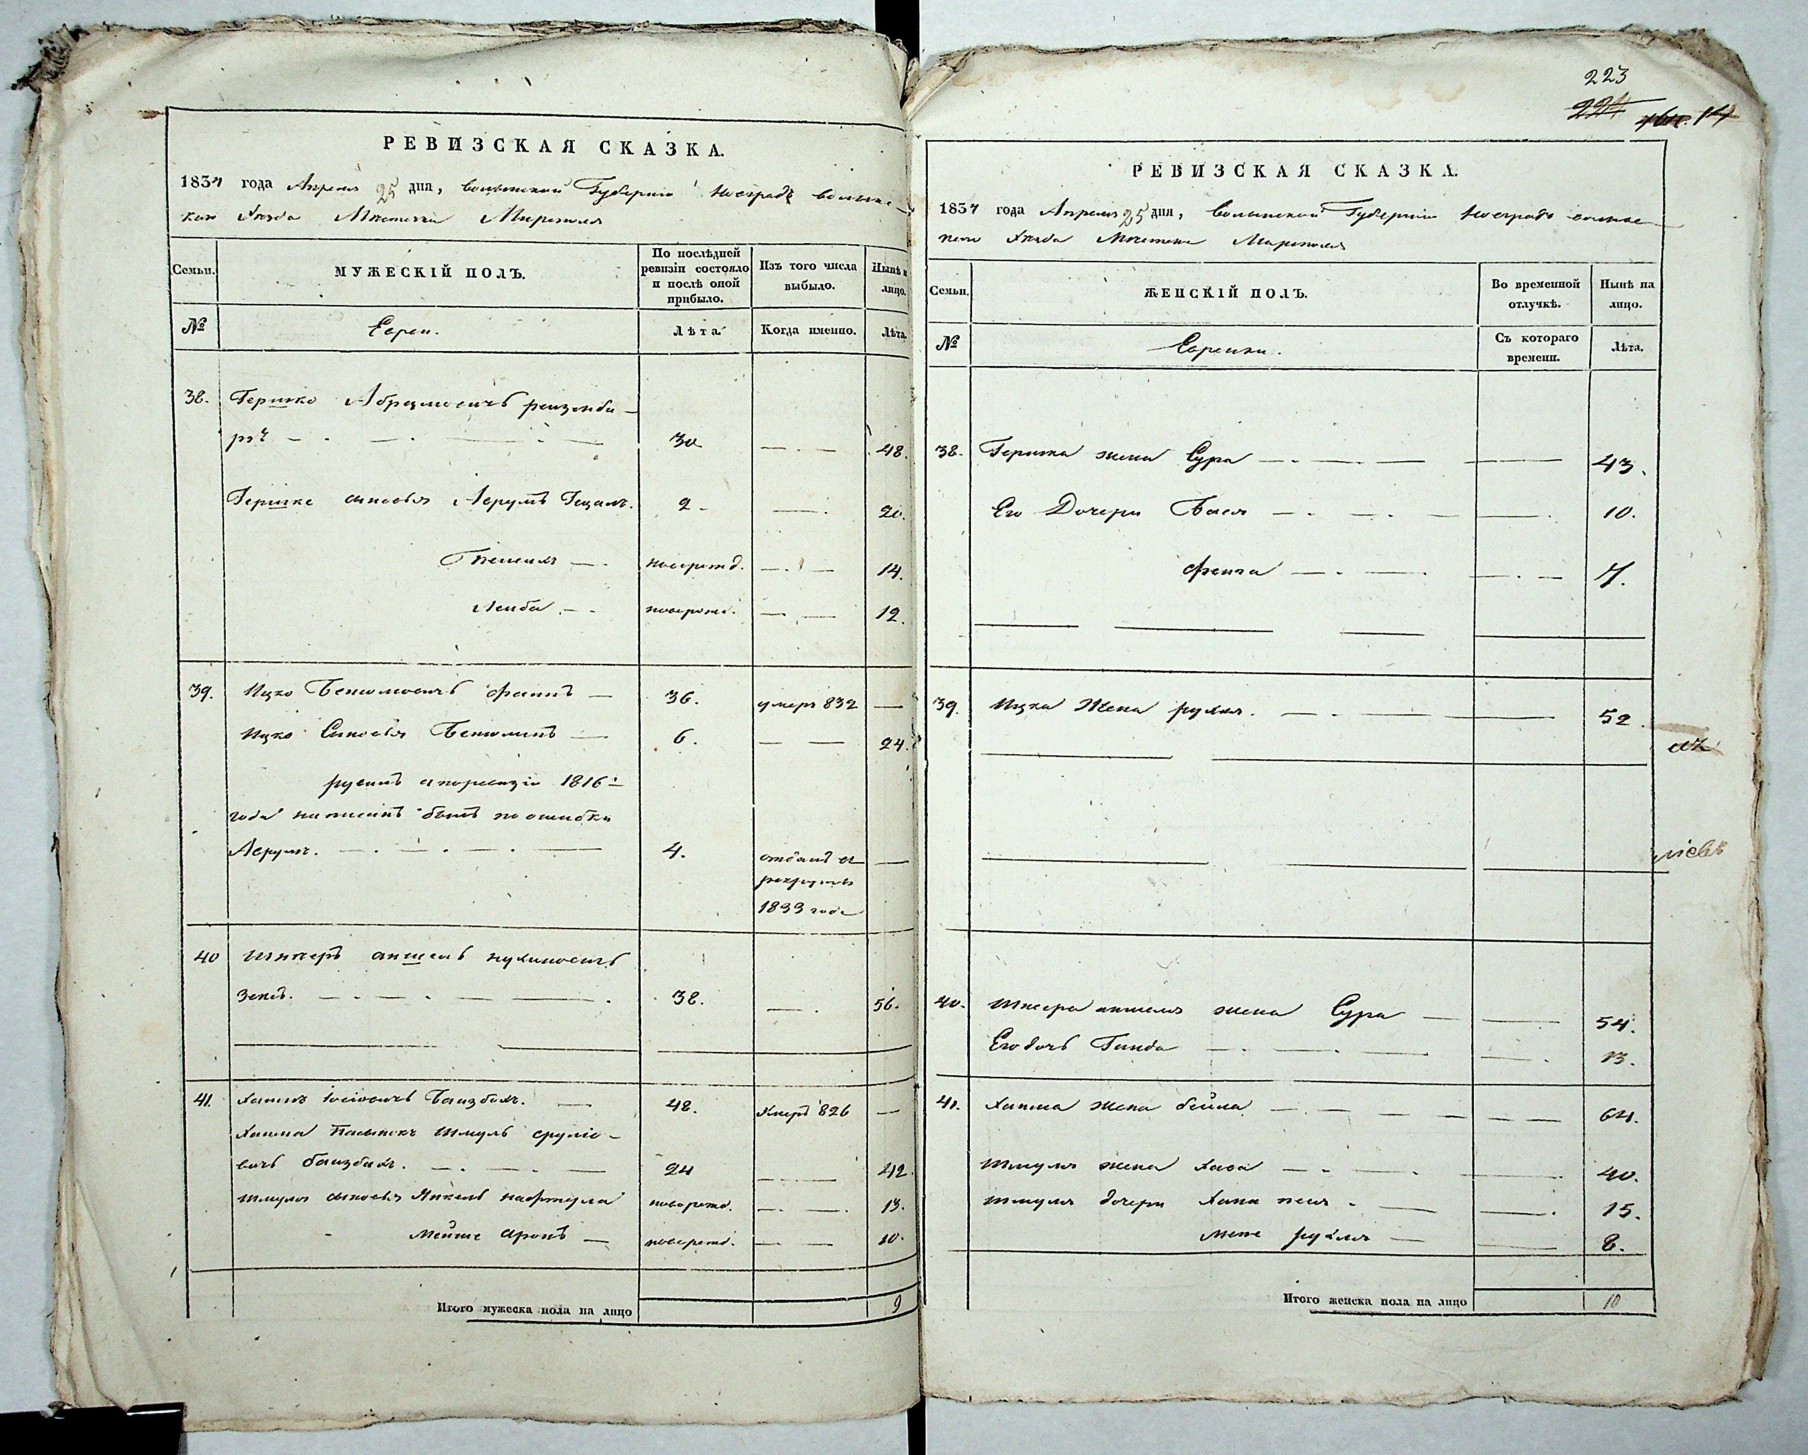 РЕВИЗСКАЯ СКАЗКА.
1834 года Апреля 25 дня, Волынской Губерніи Новградъ волынс-
каго Уѣзда Мѣстечка Мирополя
Семьи.
МУЖЕСКІЙ ПОЛЪ.
По послѣдней ревизіи состояло и послѣ оной прибыло.
Изъ того числа выбыло.
Нынѣ н лицо.
№
Евреи.
Лѣта.
Когда именно.
Лѣта.
38. Гершко Абрамовичъ
30 48.
Гершка сыновья Аврумъ 2 20.
новорожд. 14.
Лейба новорожд. 12.
39. Ицко Бенюмовичъ 36. умеръ 832
Ицко Сыновья Бенюминъ 6. 24.
рувинъ а по ревизіи 1816
года написанъ былъ по ошибки
Аврумъ. 4. отданъ в
рекруты
1833 года
40 Шнееръ аншель
38. 56.
41. Хаимъ Іосіовичъ 48. Умеръ 826
Хаима Пасынокъ Шмуль срулiо-
вичъ 24 42.
Шмуля сыновья Янкель нафтула новорожд. 13.
Мейше аронъ новорожд. 10.
Итого мужеска пола на лицо 9
223
224
14
РЕВИЗСКАЯ СКАЗКА.
1834 года Апреля 25 дня, Волынской Губерніи Новградъ волынс-
каго Уѣзда Мѣстечка Мирополя
Семьи.
ЖЕНСКІЙ ПОЛЪ.
Во временной отлучкѣ.
Нынѣ на лицо.
№
Еврейки.
Съ котораго времени.
Лѣта.
38. Гершка жена Сура 43.
Его Дочери Бася 10.
Фейга 7.
39. Ицка Жена рухля. 52.
40. Шнеера аншеля жена Сура 54.
Его дочь 13.
41. Хаима жена бейла 64.
Шмуля жена Хава 40.
Шмуля дочери Хана 15.
рухля 8.
Итого женска пола на лицо 10